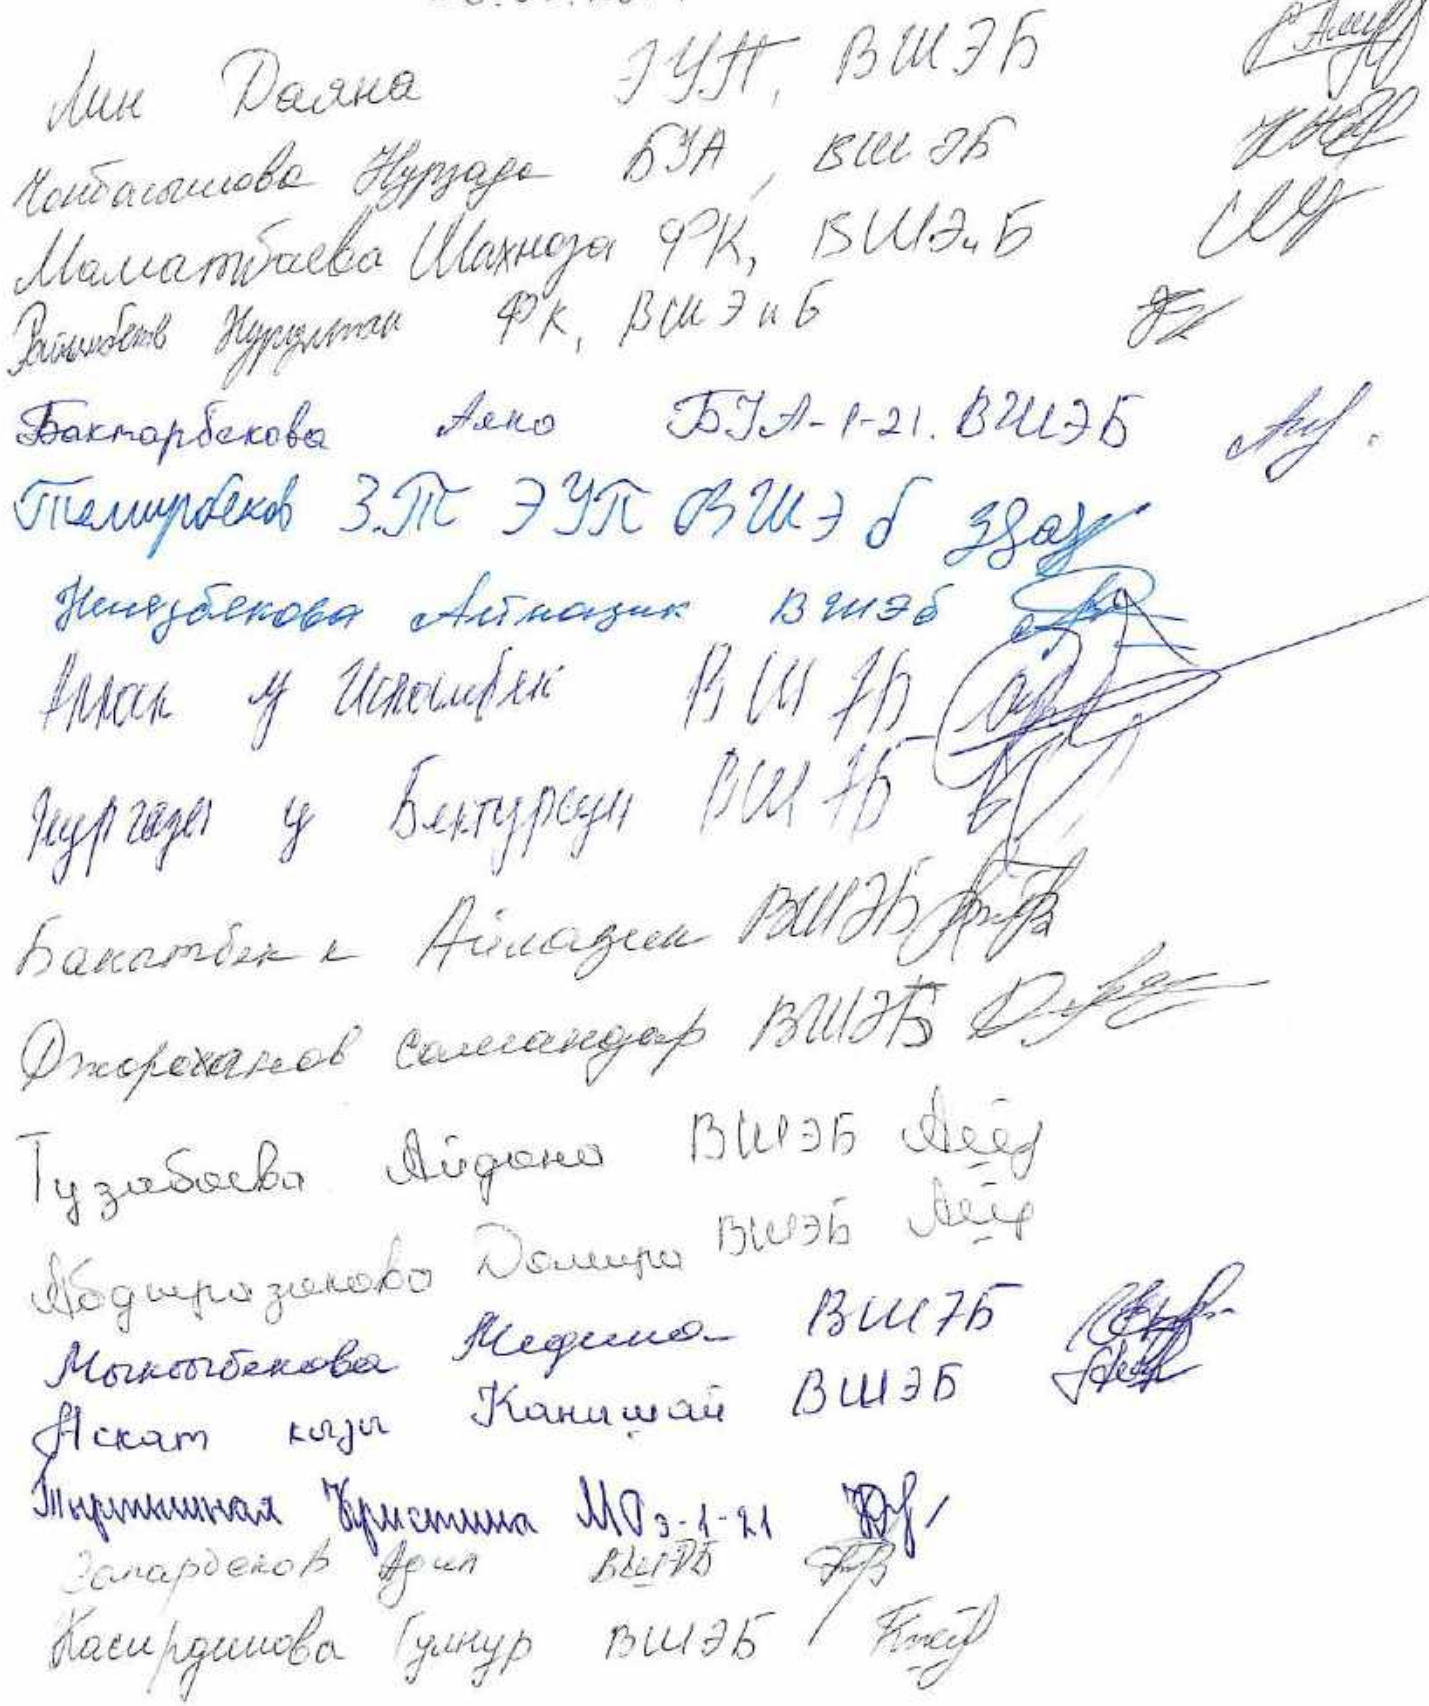 Лин Даяна ЭУП, ВШЭБ
Чонбашова Нурзада БУА, ВШЭБ
Маматбаева Шахноза ФК, ВШЭиБ
Райымбеков Нурсултан ФК, ВШЭиБ
Бактарбекова Аяна БУА-1-21. ВШЭБ
Темирбеков З.Т ЭУП ВШЭб
Ниязбекова Айназик ВШЭб
Арпак у Исламбек ВШЭБ
Нургазы у Бектурсун ВШЭБ
Бакытбек к Аймазик ВШЭБ
Джороханов Самандар ВШЭБ
Тузабаева Айдана ВШЭБ
Абдиразакова Дамира ВШЭБ
Мыктыбекова Медина ВШЭБ
Аскат кызы Канышай ВШЭБ
Кристина 1-21
Запарбеков Адил ВШЭБ
Насирдинова Гулнур ВШЭБ